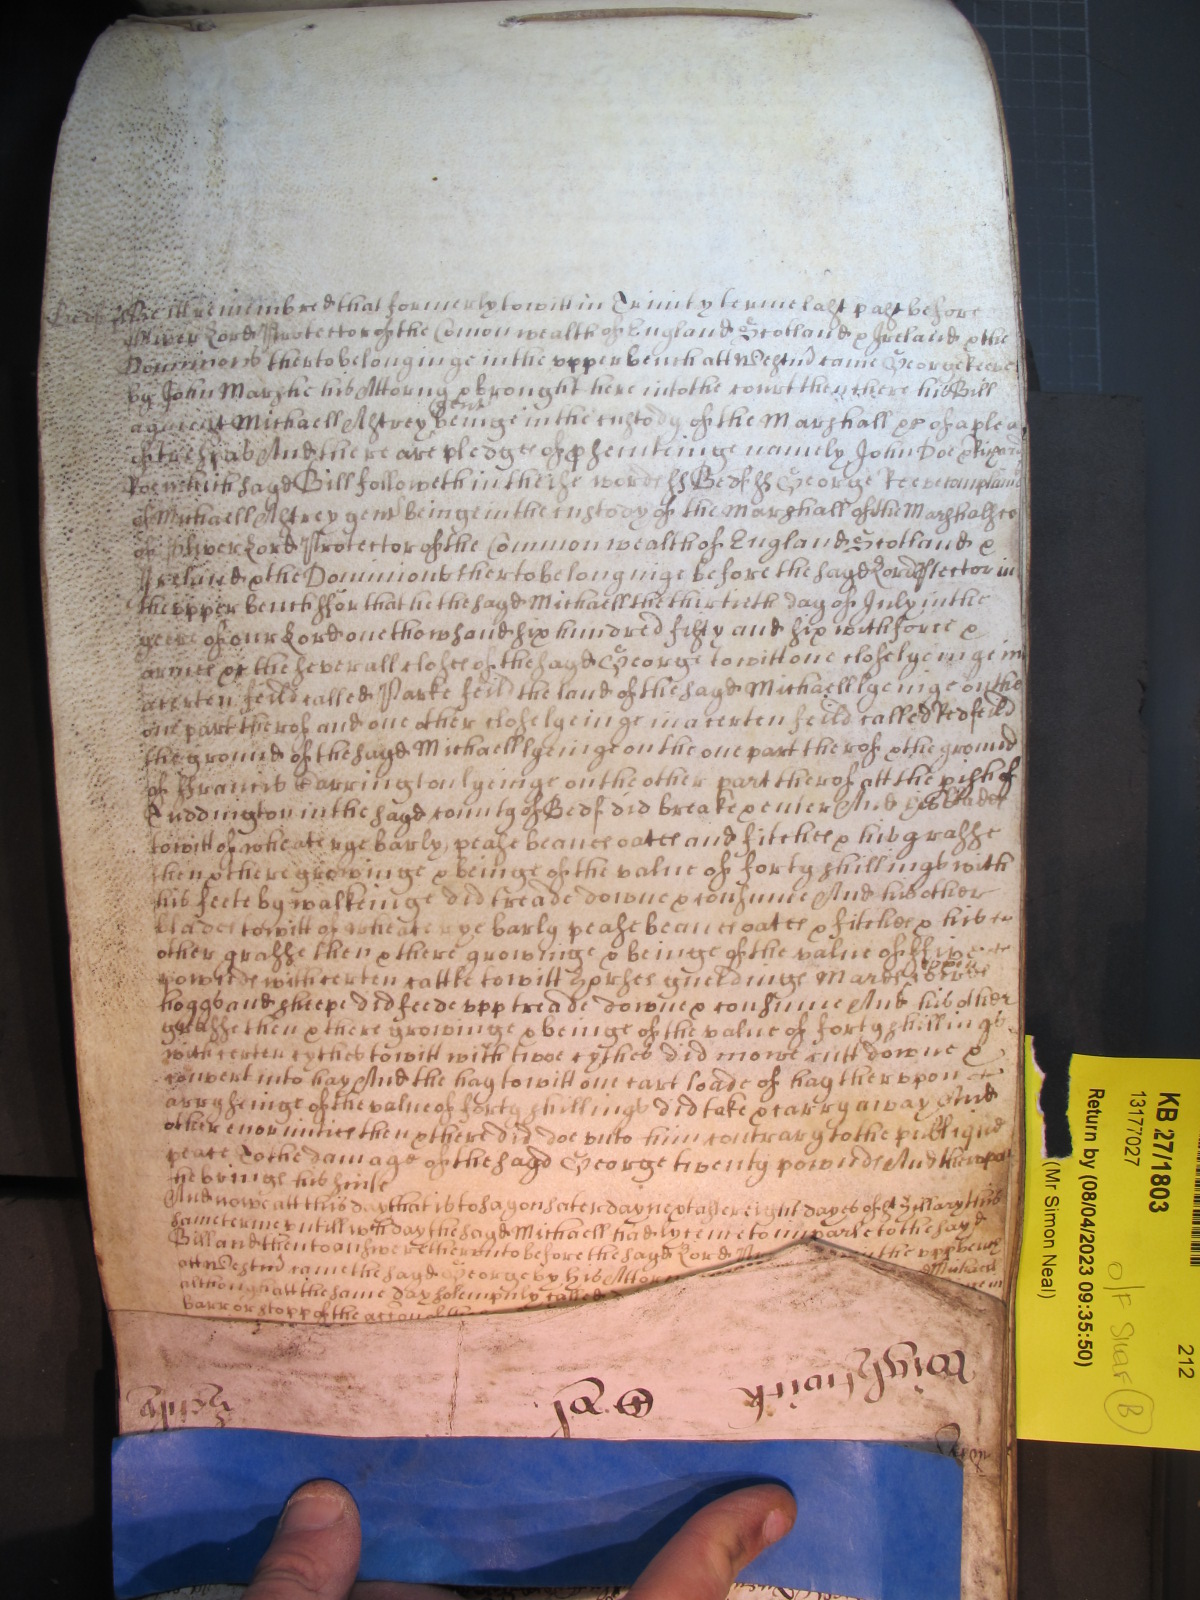 Bedf ss Be itt remembred that formerly to witt in Trinity terme last past before
Oliver Lord Protector of the Comon wealth of England Scotland & Ireland & the
Dominions therto belonginge in the upper bench att Westmr came George Keeve
by John Marshe his Attorny & brought here into the court then there his Bill
against Michaell Astrey gent beinge in the custody of the Marshall &c of a plea
of trespas And there are pledges of psecuteinge namely John Doe & Richard
Roe which sayd Bill followeth in these words ss Bedf ss George Keeve complaines
of Michaell Astrey gent beinge in the custody of the Marshall of the Marshalsee
of Oliver Lord Protector of the Common wealth of England Scotland &
Ireland & the Dominions therto belonginge before the sayd Lord Ptector in
the upper bench ffor that he the sayd Michaell the thirtieth day of July in the
yeere of our Lord one thowsand six hundred fifty and six with force &
armes &c the severall closes of the sayd George to witt one close lyeinge in
a certen feild called Parke feild the land of the sayd Michaell lyeinge on the
one part therof and one other close lyeinge in a certen feild called Redfeild
the ground of the sayd Michaell lyeinge on the one part therof & the ground
of Francis Carrington lyeinge on the other part therof att the pish of
Luddington in the sayd county of Bedf did breake & enter And his blades
to witt of wheate rye barly pease beanes oates and fitches & his grasse
then & there growinge & beinge of the value of forty shillings with
his feete by walkeinge did treade downe & consume And his other
blades to witt of wheate rye barly pease beanes oates & fitches & his
other grasse then & there growinge & beinge of the value of ffive
pownds with certen cattle to witt horses gueldings Mares cowes
hoggs and sheepe did feede upp treade downe & consume And his other
grasse then & there growinge & beinge of the value of forty shillings
with certen sythes to witt with twoe sythes did mowe cutt downe &
convert into hay And the hay to witt one cart loade of hay therupon
arryseinge of the value of forty shillings did take & carry away And
other enormities then & there did doe unto him contrary to the publique
peace To the damage of the sayd George twenty pownds And therupon
he brings his suite
And nowe att this day that is to say on Saterday next after eight dayes of St Hillary this
same terme untill wch day the sayd Michaell had lycence to imparle to the sayd
Bill and then to answere therunto before the sayd Lord in the upp bench
att Westmr came the sayd George by his Attorn Michael
although att the same day solempnly called
barr or stopp of the
KB 27/1803
13177027
Return by (08/04/2023 09:35:50)
(Mr Simon Neal)
212
O/F Shar B